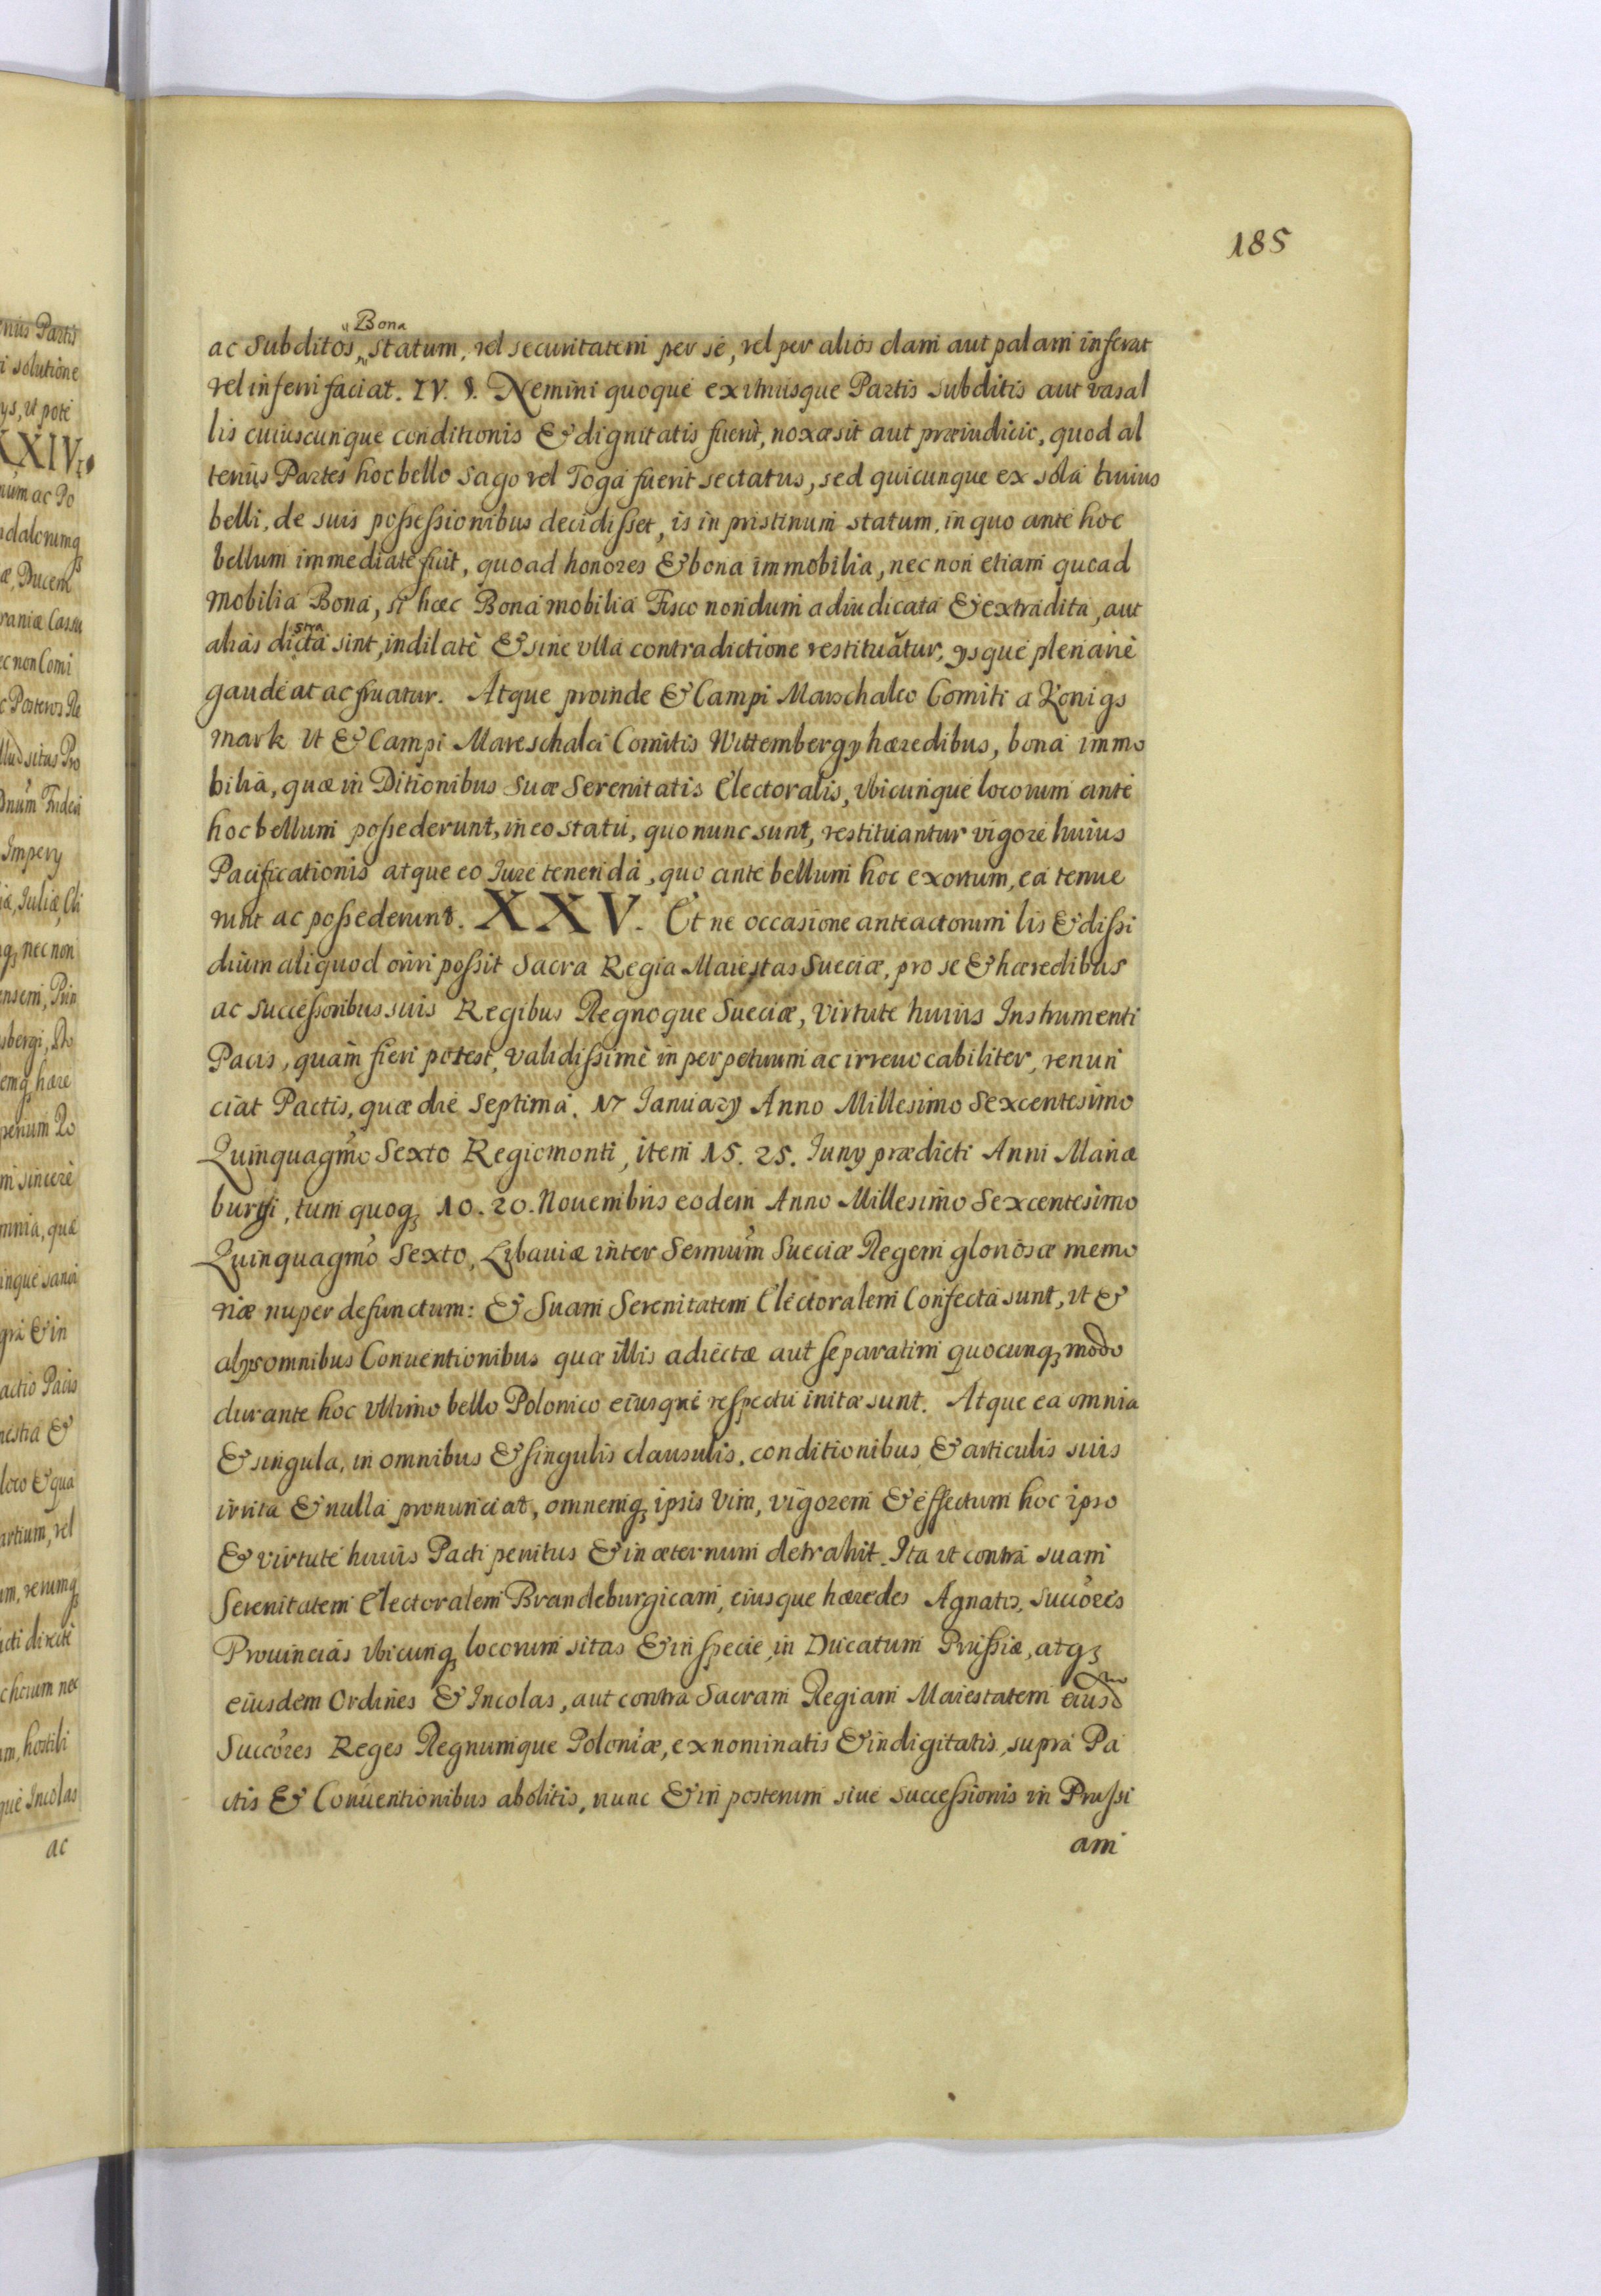 185
Bona
ac Subditos, statum, vel securitatem per se, vel per alios clam aut palam inferat
vel inferri faciat. IV. §. Nemini quoque ex utriusque Partis subditis aut vasal
lis cuiuscunque conditionis & dignitatis fuerit, noxæ sit aut præiudicio, quod al
terius Partes hoc bello sago vel Toga fuerit sectatus, sed quicunque ex sola huius
belli, de suis possessionibus decidisset, is in pristinum statum, in quo ante hoc
bellum immediate fuit, quoad honores & bona immobilia, nec non etiam quoad
mobilia Bona, si hæc Bona mobilia Fisco nondum adiudicata & extradita, aut
stra
alias dicta sint, indilatè & sine vlla contradictione restituatur, ijsque plenarie
gaudeat ac fruatur. Atque proinde & Campi Marschalco Comiti a Konigs
mark Vt & Campi Mareschalci Comitis Wittembergij hæredibus, bona immo
bilia, quæ in Ditionibus Suæ Serenitatis Electoralis, Vbicunque locorum ante
hoc bellum possederunt, in eo statu, quo nunc sunt, restituantur vigore huius
Pacificationis atque eo Iure tenenda, quo ante bellum hoc exortum, ea tenue
runt ac possederunt. XXV. Et ne occasione anteactorum lis & dissi
dium aliquod oriri possit Sacra Regia Maiestas Sueciæ, pro se & hæredibus
ac Successoribus suis Regibus Regnoque Sueciæ, Virtute huius Instrumenti
Pacis, quam fieri potest, validissimè in perpetuum ac irreuocabiliter, renun
ciat Pactis, quæ die Septima. 17 Ianuarij Anno Millesimo Sexcentesimo
Quinquagmo Sexto Regiomonti, item 15. 25. Iunij prædicti Anni Mariæ
burgi, tum quoq 10. 20. Nouembris eodem Anno Millesimo Sexcentesimo
Quinquagmo Sexto, Libauiæ inter Sermum Sueciæ Regem gloriosæ memo
riæ nuper defunctum: & Suam Serenitatem Electoralem Confecta sunt, Vt &
alijs omnibus Conuentionibus quæ illis adiectæ aut separatim quocunq modo
durante hoc Vltimo bello Polonico eiusque respectu initæ sunt. Atque ea omnia
& singula, in omnibus & singulis clausulis, conditionibus & articulis suis
irrita & nulla pronunciat, omnemq ipsis Vim, vigorem & effectum hoc ipso
& virtute huius Pacti penitus & in æternum detrahit. Ita vt contra suam
Serenitatem Electoralem Brandeburgicam, eiusque hæredes Agnatos, Succores
Prouincias Vbicunq locorum sitas & in specie, in Ducatum Prussiæ, atq
eiusdem Ordines & Incolas, aut contra Sacram Regiam Maiestatem eiusd
Succores Reges Regnumque Poloniæ, ex nominatis & indigitatis, supra Pa
ctis & Conuentionibus abolitis, nunc & in posterum siue successionis in Prussi
am